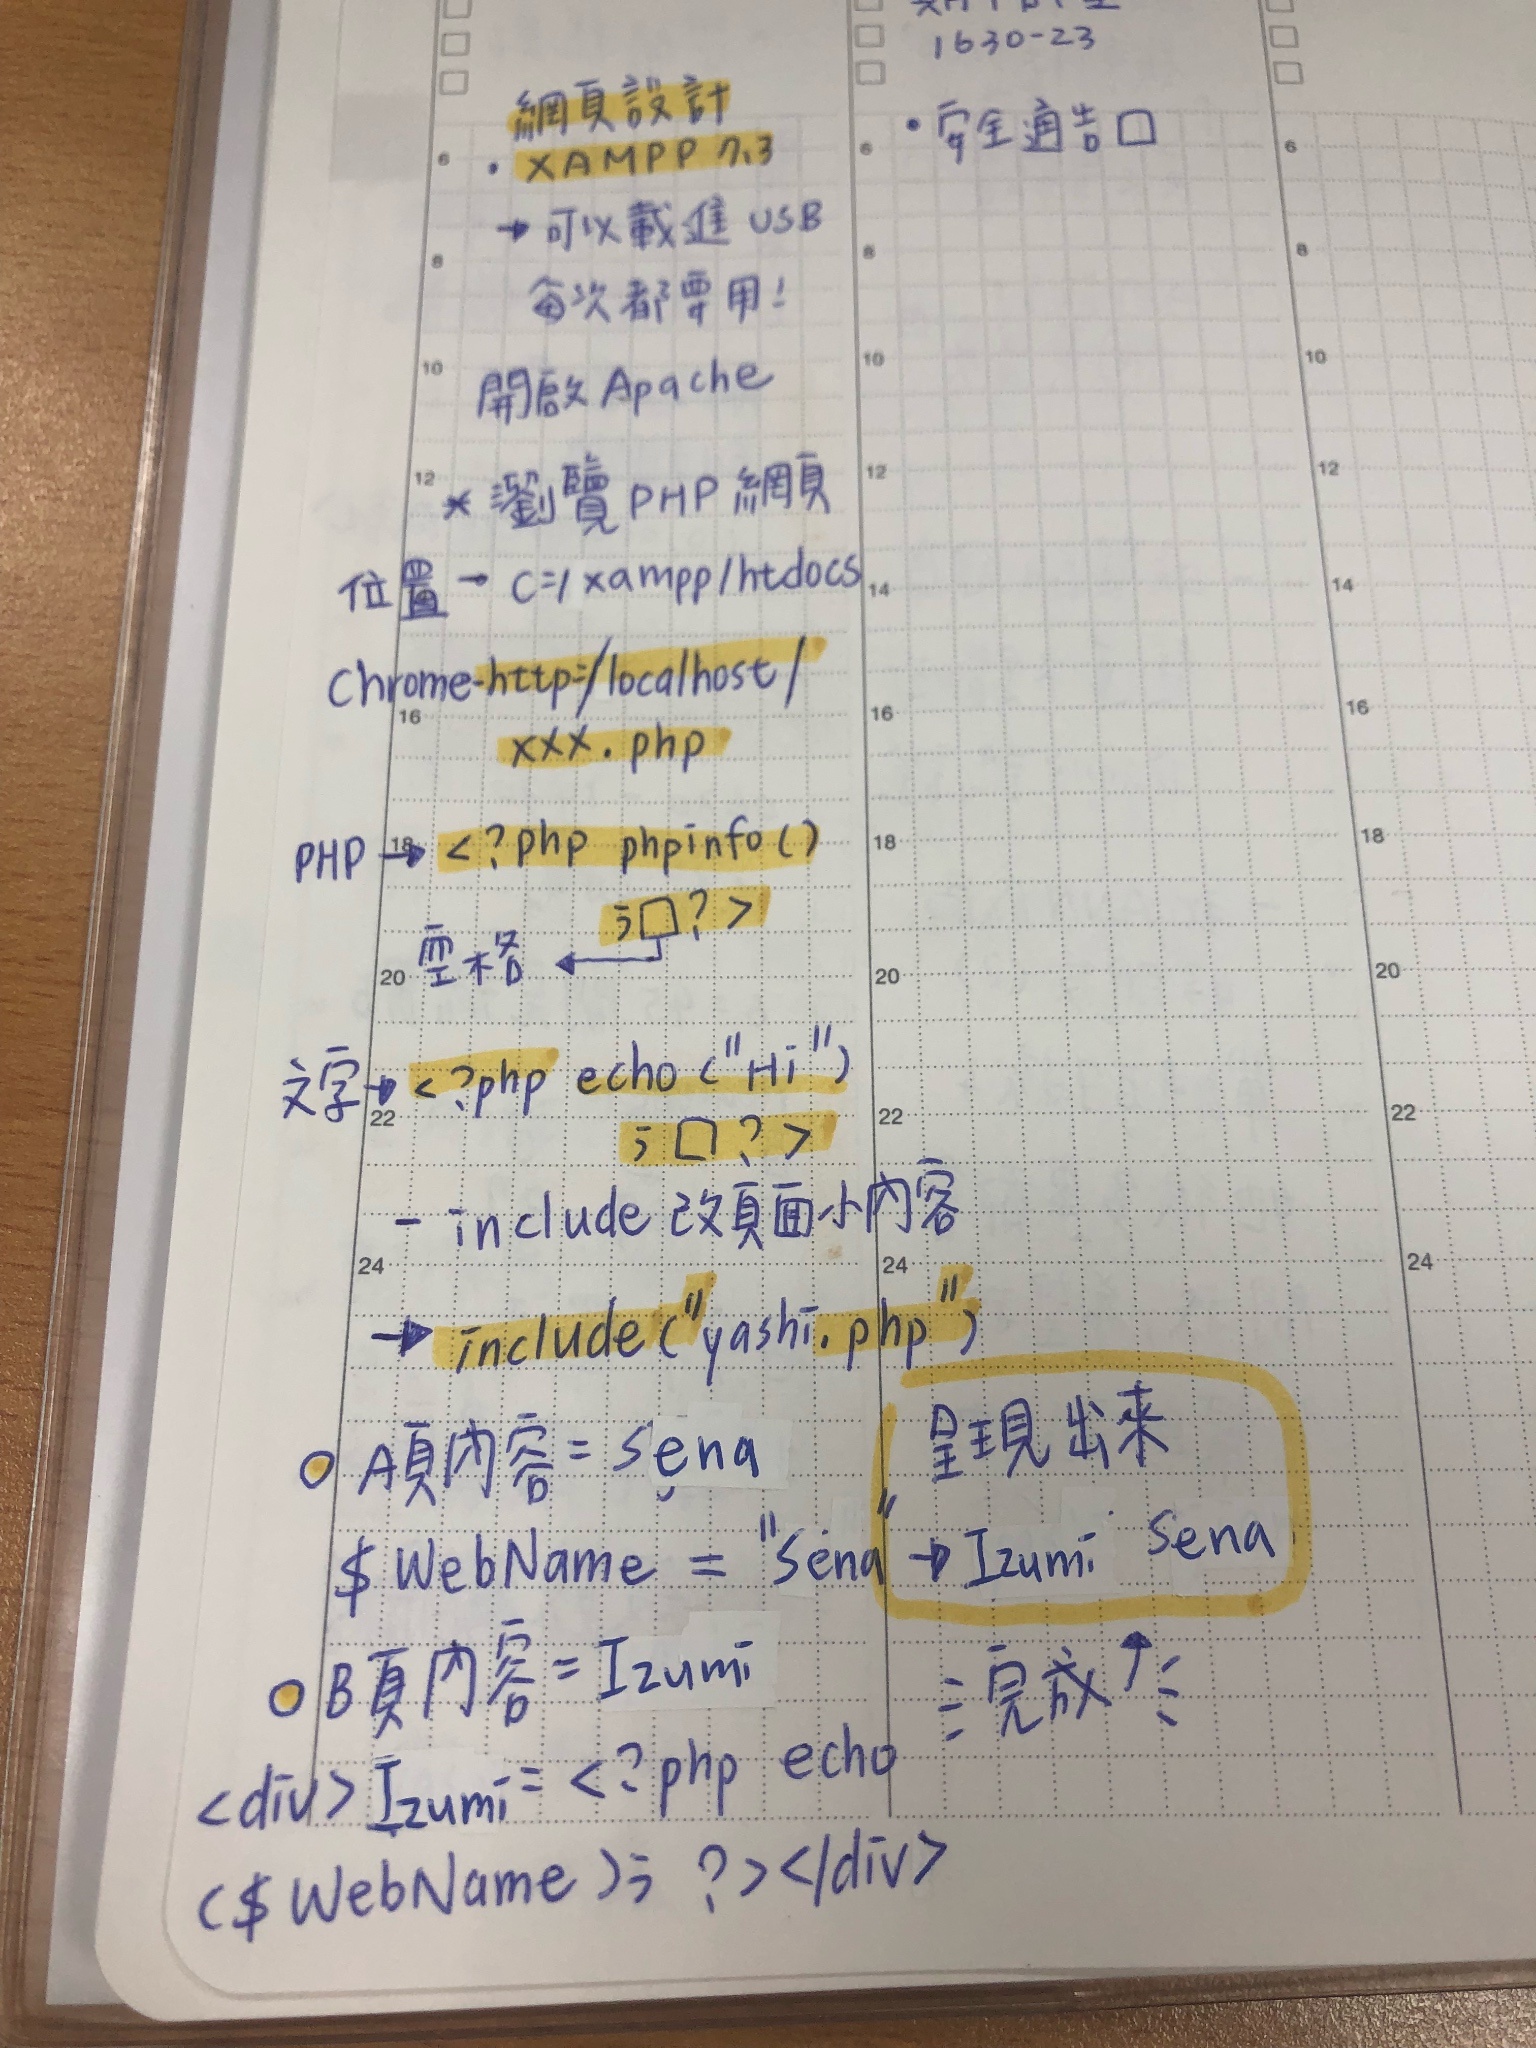 網頁設計
• XAMPP 7.3
→ 可以載進 USB
每次都要用!
開啟 Apache
* 瀏覽 PHP 網頁
位置 → C=/xampp/htdocs
Chrome-http=/localhost/
xxx.php
PHP → <?php phpinfo()
;□?>
空格 ←
文字 → <?php echo ("Hi")
;□?>
- include 改頁面小內容
→ include ("yashi.php")
A頁內容 = sena
$ WebName = "Sena"
B頁內容 = Izumi
<div>Izumi = <?php echo
($ WebName ); ?></div>
1630-23
• 安全通告□
呈現出來
→ Izumi Sena
完成↑
6
8
10
12
14
16
18
20
22
24
6
8
10
12
14
16
18
20
22
24
6
8
10
12
14
16
18
20
22
24